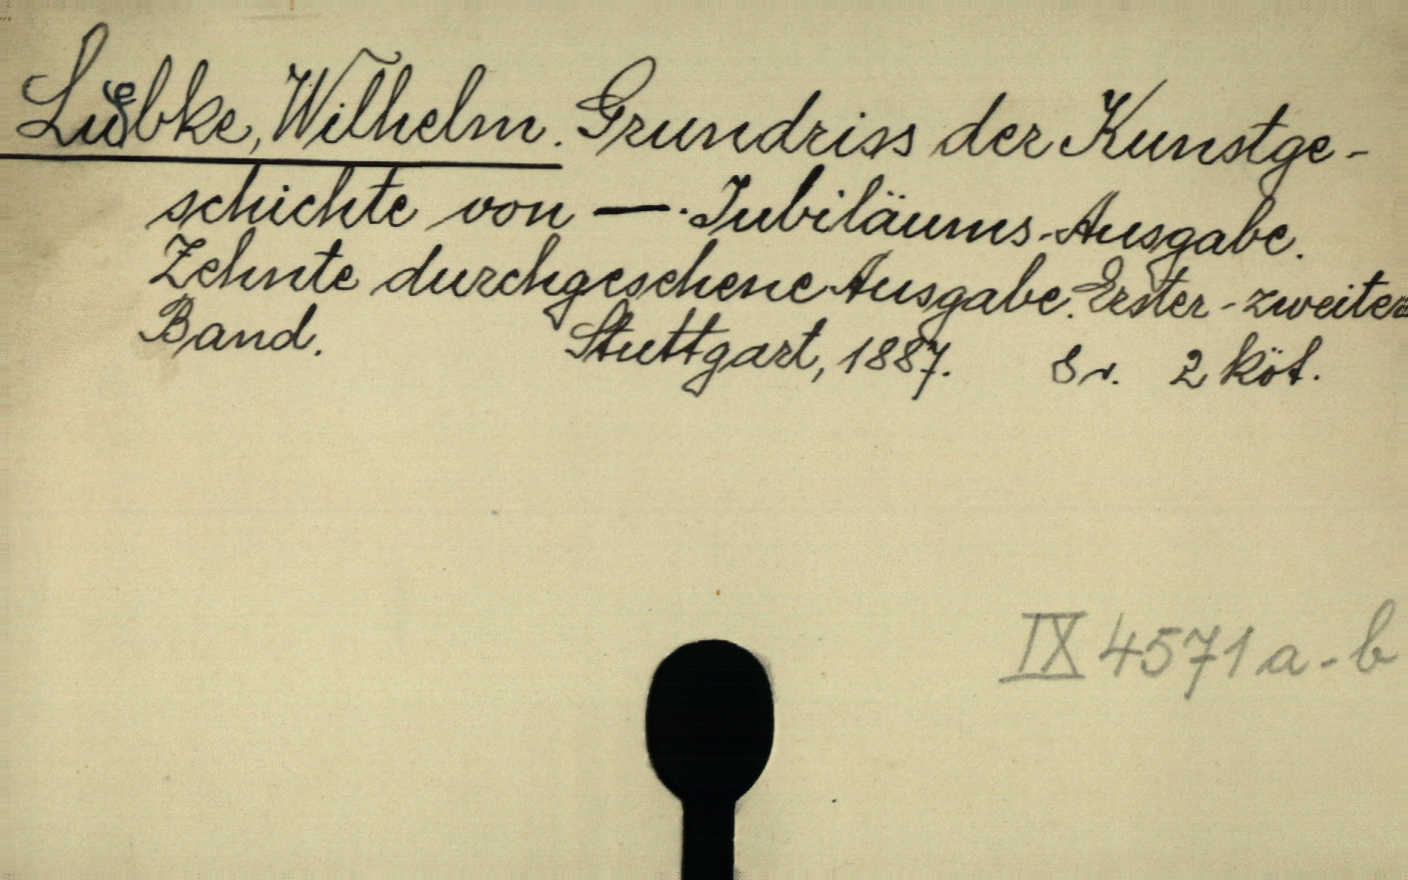 Luebke, Wilhelm. Grundriss der Kunstge-
schichte von —. Jubiläums-Ausgabe.
Zehnte durchgesehene Ausgabe. Erster-zweiter
Band. Stuttgart, 1887. 8r. 2 köt.
IX 4571 a-b